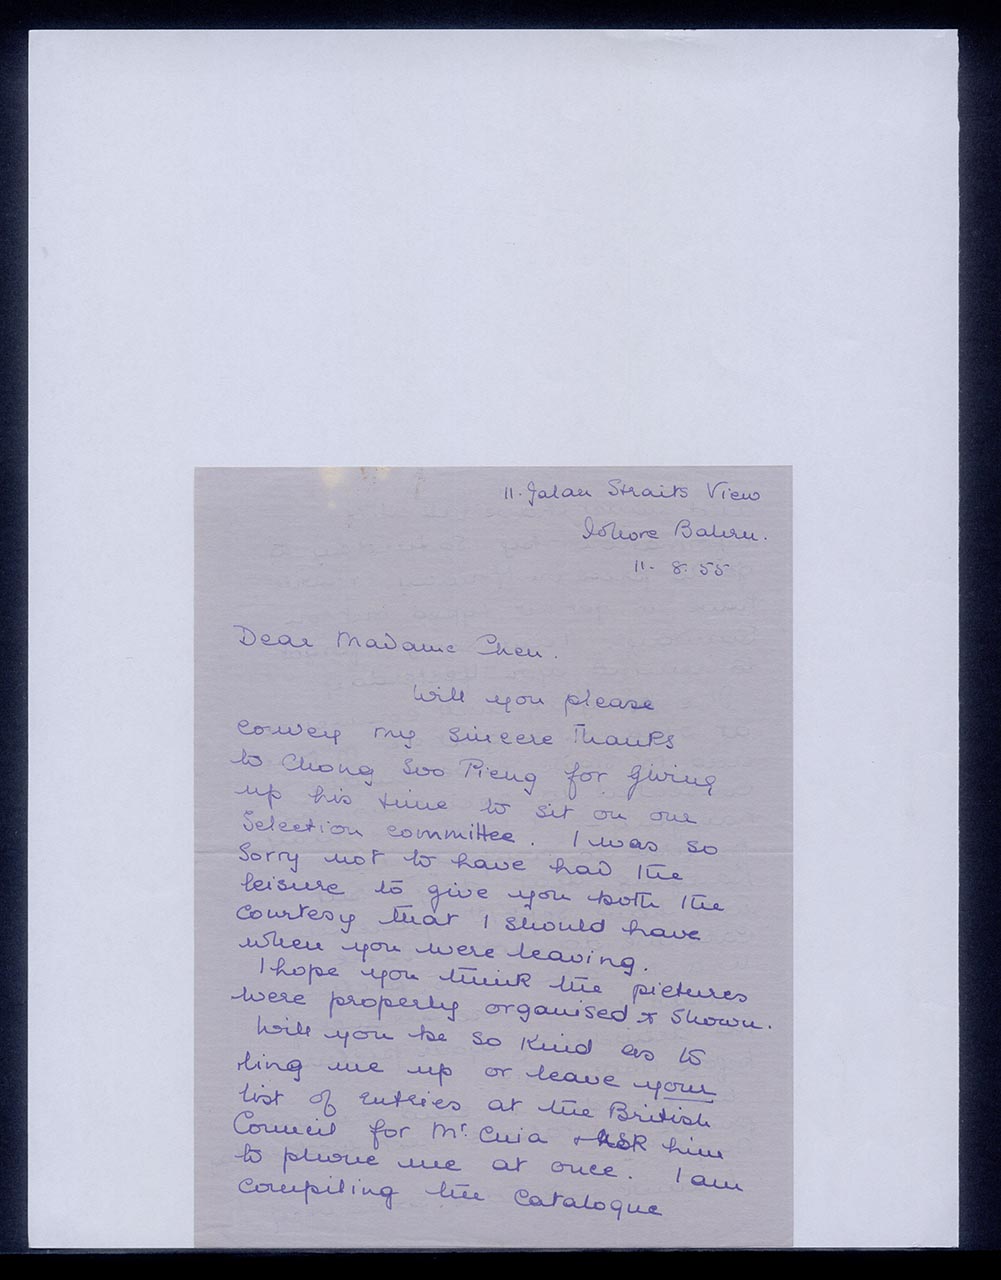 11. Jalan Straits View
Johore Bahru.
11. 8. 55
Dear Madame Chen.
Will you please
convey my sincere thanks
to Chong Soo Pieng for giving
up his time to sit on our
Selection committee. I was so
sorry not to have had the
leisure to give you both the
courtesy that I should have
when you were leaving.
I hope you think the pictures
were properly organised & shown.
Will you be so kind as to
ring me up or leave your
list of entries at the British
Council for Mr. Chia & ask him
to phone me at once. I am
compiling the catalogue